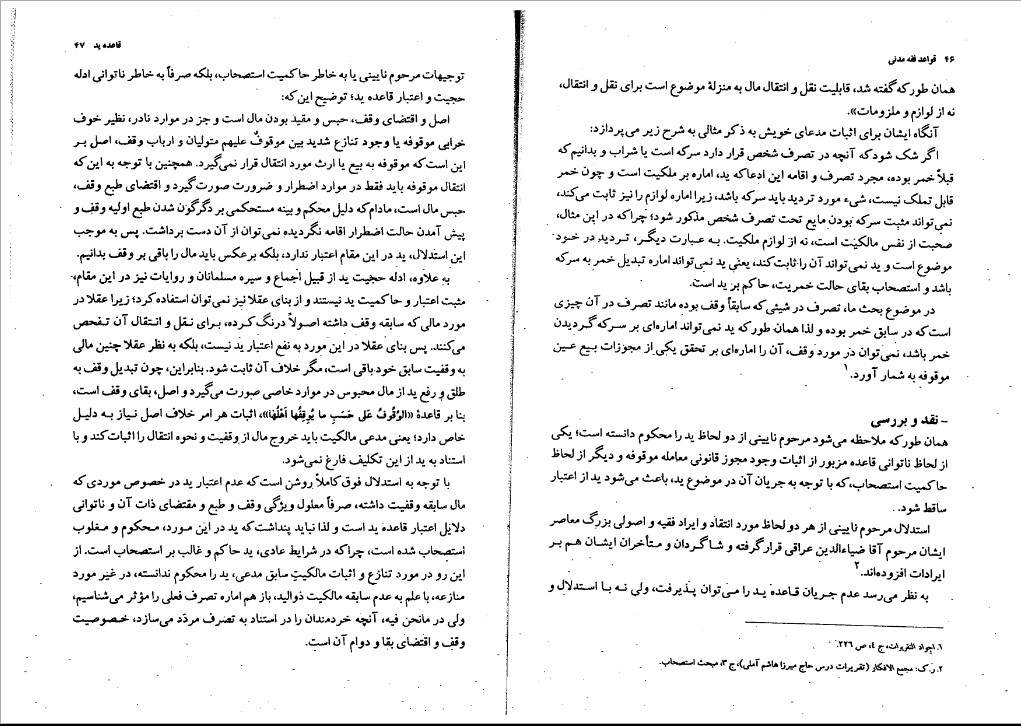 ۴۶ قواعد فقه مدنی
همان طورکه گفته شد، قابلیت نقل و انتقال مال به منزلهٔ موضوع است برای نقل و انتقال،
نه از لوازم و ملزومات».
آنگاه ایشان برای اثبات مدعای خویش به ذکر مثالی به شرح زیر می‌پردازد:
اگر شک شود که آنچه در تصرف شخص قرار دارد سرکه است یا شراب و بدانیم که
قبلاً خمر بوده، مجرد تصرف و اقامه این ادعا که ید، اماره بر ملکیت است و چون خمر
قابل تملک نیست، شیء مورد تردید باید سرکه باشد، زیرا اماره لوازم را نیز ثابت می‌کند،
نمی‌تواند مثبت سرکه بودن مایع تحت تصرف شخص مذکور شود؛ چراکه در این مثال،
صحبت از نفس مالکیت است، نه از لوازم ملکیت. به عبارت دیگر، تردید در خود
موضوع است و ید نمی‌تواند آن را ثابت کند، یعنی ید نمی‌تواند اماره تبدیل خمر به سرکه
باشد و استصحاب بقای حالت خمریت، حاکم بر ید است.
در موضوع بحث ما، تصرف در شیئی که سابقاً وقف بوده مانند تصرف در آن چیزی
است که در سابق خمر بوده و لذا همان طور که ید نمی‌تواند اماره‌ای بر سرکه گردیدن
خمر باشد، نمی‌توان در مورد وقف، آن را اماره‌ای بر تحقق یکی از مجوزات بیع عین
موقوفه به شمار آورد.۱
- نقد و بررسی
همان طورکه ملاحظه می‌شود مرحوم نایینی از دو لحاظ ید را محکوم دانسته است؛ یکی
از لحاظ ناتوانی قاعده مزبور از اثبات وجود مجوز قانونی معامله موقوفه و دیگر از لحاظ
حاکمیت استصحاب، که با توجه به جریان آن در موضوع ید، باعث می‌شود ید از اعتبار
ساقط شود.
استدلال مرحوم نایینی از هر دو لحاظ مورد انتقاد و ایراد فقیه و اصولی بزرگ معاصر
ایشان مرحوم آقا ضیاءالدین عراقی قرارگرفته و شاگردان و متأخران ایشان هم بر
ایرادات افزوده‌اند.۲
به نظر می‌رسد عدم جریان قاعده ید را می‌توان پذیرفت، ولی نه با استدلال و
۱. اجواد التقریرات، ج ۴، ص ۲۲۶.
۲. ر.ک: مجمع الافکار (تقریرات درس حاج میرزا هاشم آملی)، ج ۳، مبحث استصحاب.
قاعده ید ۴۷
توجیهات مرحوم نایینی یا به خاطر حاکمیت استصحاب، بلکه صرفاً به خاطر ناتوانی ادله
حجیت و اعتبار قاعده ید؛ توضیح این‌که:
اصل و اقتضای وقف، حبس و مقید بودن مال است و جز در موارد نادر، نظیر خوف
خرابی موقوفه یا وجود تنازع شدید بین موقوفٌ علیهم متولیان و ارباب وقف، اصل بر
این است که موقوفه به بیع یا ارث مورد انتقال قرار نمی‌گیرد. همچنین با توجه به این‌که
انتقال موقوفه باید فقط در موارد اضطرار و ضرورت صورت گیرد و اقتضای طبع وقف،
حبس مال است، مادام که دلیل محکم و بینه مستحکمی بر دگرگون شدن طبع اولیه وقف و
پیش آمدن حالت اضطرار اقامه نگردیده نمی‌توان از آن دست برداشت. پس به موجب
این استدلال، ید در این مقام اعتبار ندارد، بلکه برعکس باید مال را باقی بر وقف بدانیم.
به علاوه، ادله حجیت ید از قبیل اجماع و سیره مسلمانان و روایات نیز در این مقام،
مثبت اعتبار و حاکمیت ید نیستند و از بنای عقلا نیز نمی‌توان استفاده کرد؛ زیرا عقلا در
مورد مالی که سابقه وقف داشته اصولاً درنگ کرده، برای نقل و انتقال آن تفحص
می‌کنند. پس بنای عقلا در این مورد به نفع اعتبار ید نیست، بلکه به نظر عقلا چنین مالی
به وقفیت سابق خود باقی است، مگر خلاف آن ثابت شود. بنابراین، چون تبدیل وقف به
طلق و رفع ید از مال محبوس در موارد خاصی صورت می‌گیرد و اصل، بقای وقف است،
بنا بر قاعدهٔ «الوُقُوفُ عَلى حَسَبِ ما يُوقِفُها أَهْلُها»، اثبات هر امر خلاف اصل نیاز به دلیل
خاص دارد؛ یعنی مدعی مالکیت باید خروج مال از وقفیت و نحوه انتقال را اثبات کند و با
استناد به ید از این تکلیف فارغ نمی‌شود.
با توجه به استدلال فوق کاملاً روشن است که عدم اعتبار ید در خصوص موردی که
مال سابقه وقفیت داشته، صرفاً معلول ویژگی وقف و طبع و مقتضای ذات آن و ناتوانی
دلایل اعتبار قاعده ید است و لذا نباید پنداشت که ید در این مورد، محکوم و مغلوب
استصحاب شده است، چراکه در شرایط عادی، ید حاکم و غالب بر استصحاب است. از
این رو در مورد تنازع و اثبات مالکیتِ سابق مدعی، ید را محکوم ندانسته، در غیر مورد
منازعه، با علم به عدم سابقه مالکیت ذوالید، باز هم اماره تصرف فعلی را مؤثر می‌شناسیم،
ولی در مانحن فیه، آنچه خردمندان را در استناد به تصرف مردّد می‌سازد، خصوصیت
وقف و اقتضای بقا و دوام آن است.